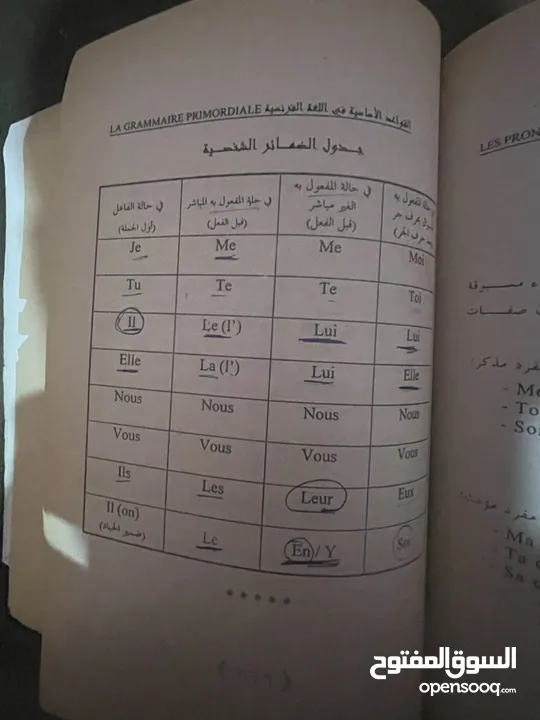 LA GRAMMAIRE PRIMORDIALE القواعد الأساسية في اللغة الفرنسية
جدول الضمائر الشخصية
في حالة الفاعل
(أول الجملة)
في حالة المفعول به المباشر
(قبل الفعل)
في حالة المفعول به
الغير مباشر
(قبل الفعل)
Je Me Me Moi
Tu Te Te Toi
Il Le (l') Lui Lui
Elle La (l') Lui Elle
Nous Nous Nous Nous
Vous Vous Vous Vous
Ils Les Leur Eux
Il (on) Le En / Y Soi
(ضمير الحياد)
*****
LES PRON
مسبوقة
صفات
مفرد مذكر
- M
- To
- So
مفرد
- Ma
- Ta
- Sa
السوق المفتوح
opensooq.com